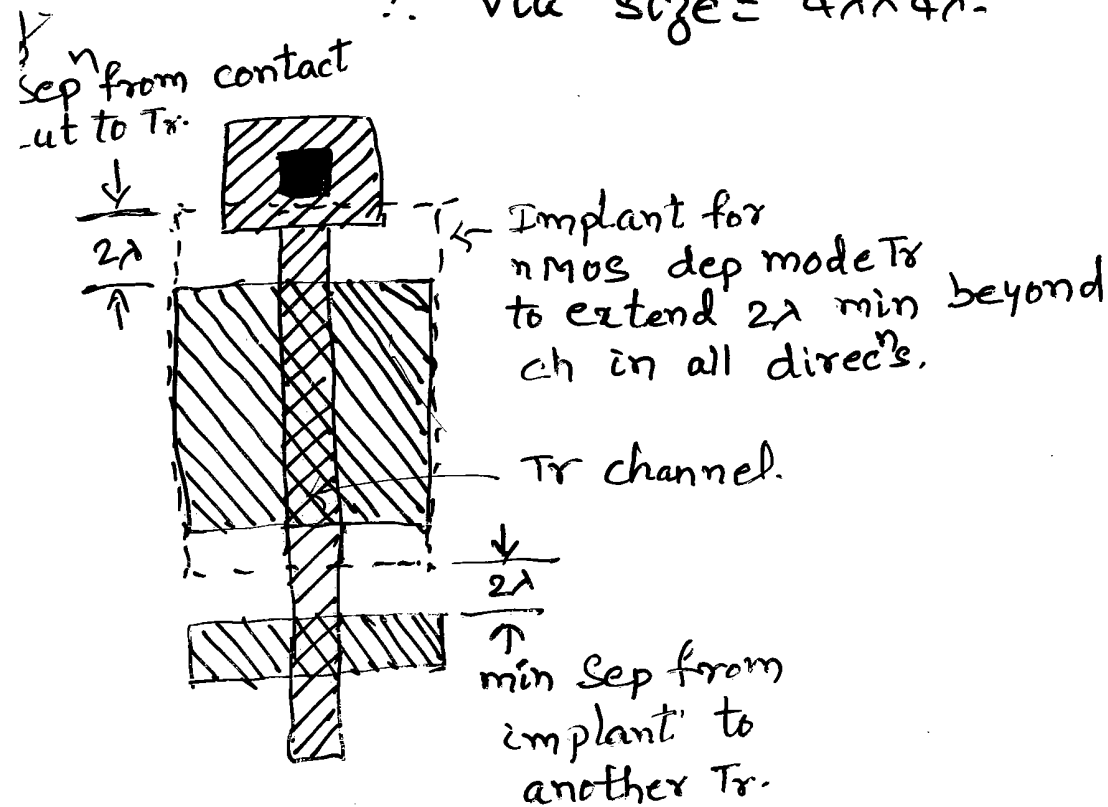 ∴ Via size = 4λ×4λ.
Sepⁿ from contact
-ut to Tr.
2λ
Implant for
nMOS dep mode Tr
to extend 2λ min beyond
ch in all direcⁿs.
Tr channel.
2λ
min Sep from
implant to
another Tr.